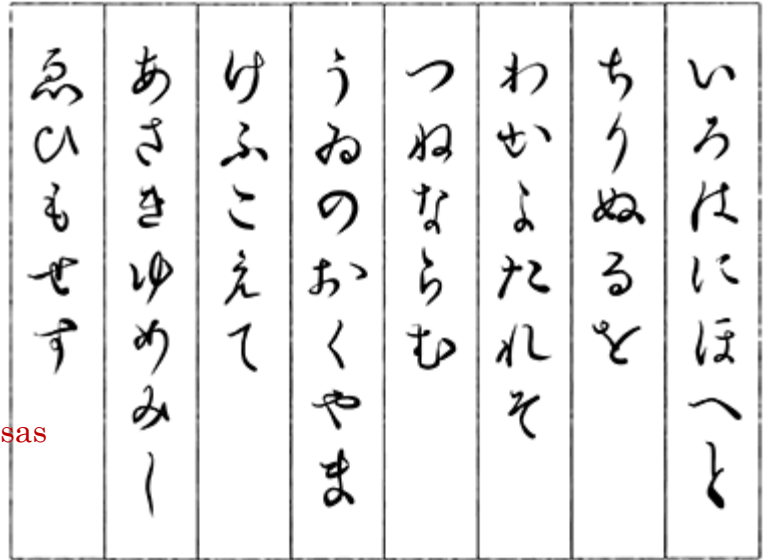 いろはにほへと
ちりぬるを
わかよたれそ
つねならむ
うゐのおくやま
けふこえて
あさきゆめみし
ゑひもせす
sas